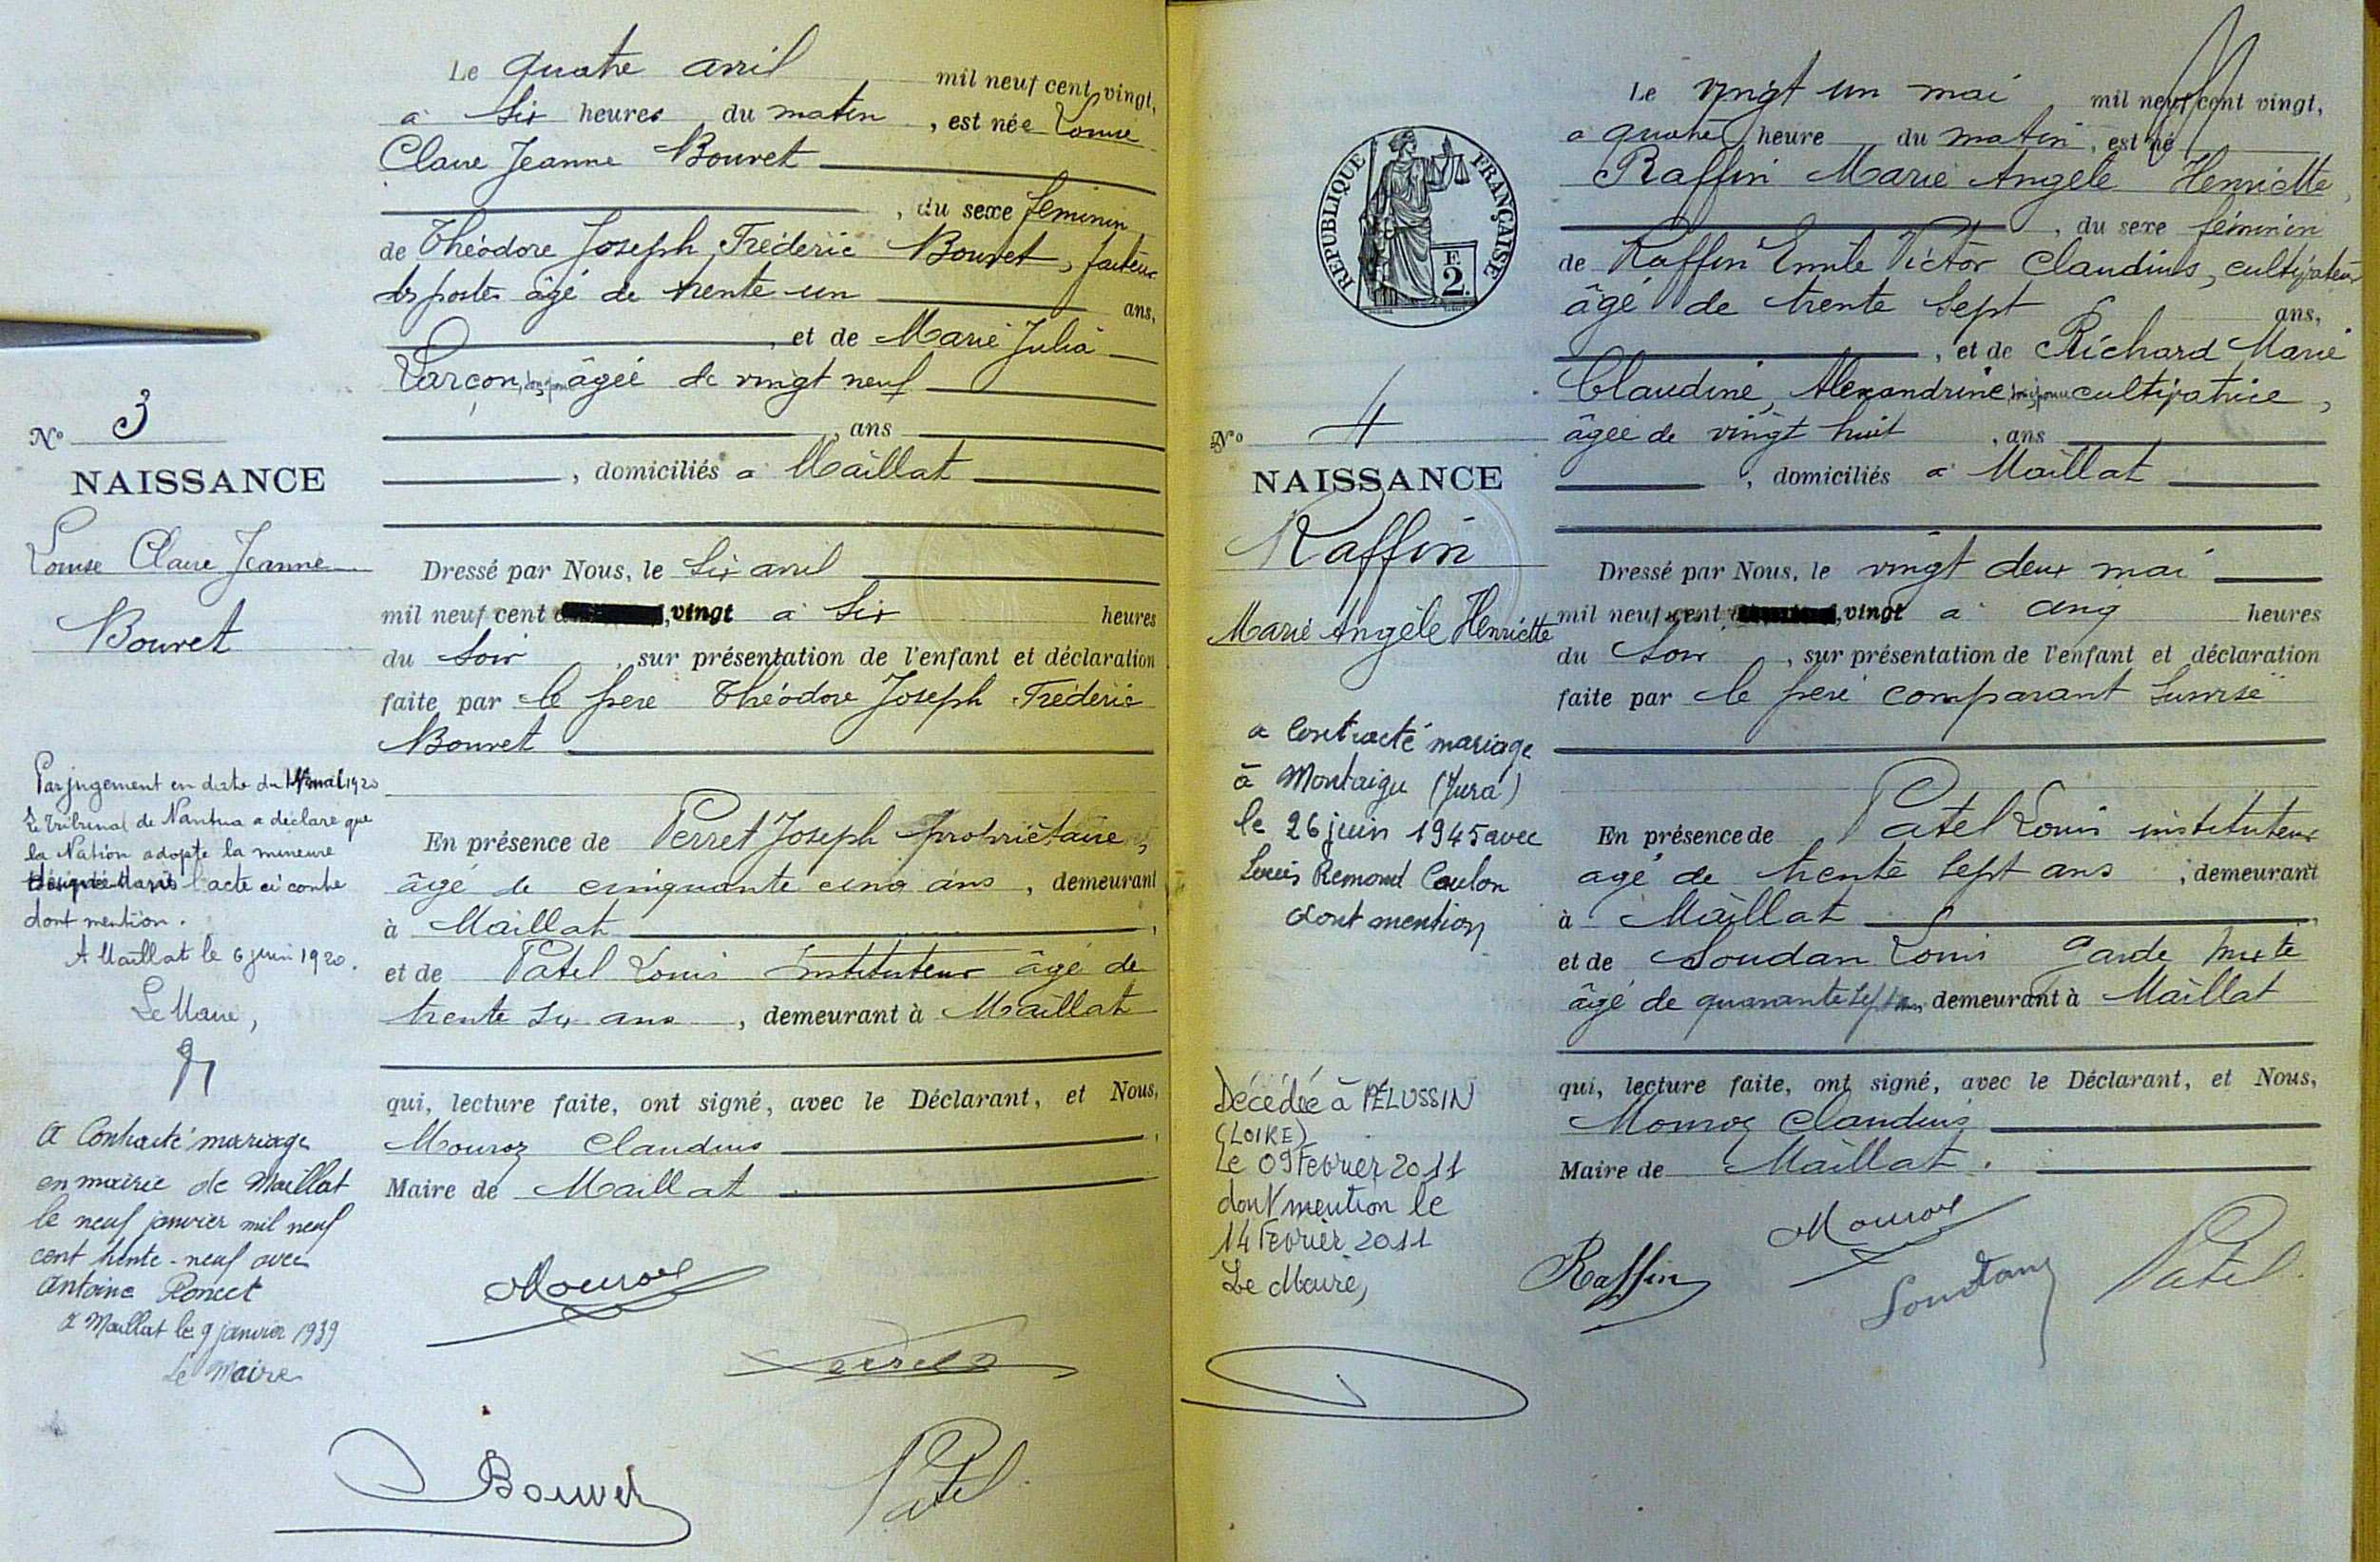 Le quatre avril mil neuf cent vingt,
à six heures du matin, est née Louise
Claire Jeanne Bouvet
, du sexe féminin
de Théodore Joseph Fréderic Bouvet, facteur
des postes âgé de trente un ans,
, et de Marie Julia
Varçon, âgée de vingt neuf
, ans
, domiciliés à Maillat
N° 3
NAISSANCE
Louise Claire Jeanne
Bouvet
Dressé par Nous, le six avril
mil neuf cent vingt à six heures
du soir, sur présentation de l'enfant et déclaration
faite par le père Théodore Joseph Fréderic
Bouvet
Par jugement en date du mai 1920
le tribunal de Nantua a déclaré que
la Nation adopte la mineure
l'acte ci contre
dont mention.
A Maillat le 6 juin 1920.
Le Maire,
En présence de Perret Joseph propriétaire,
âgé de cinquante cinq ans, demeurant
à Maillat,
et de Patel Louis instituteur âgé de
trente six ans, demeurant à Maillat
qui, lecture faite, ont signé, avec le Déclarant, et Nous,
Mouroz Claudius,
Maire de Maillat
A contracté mariage
en mairie de Maillat
le neuf janvier mil neuf
cent trente-neuf avec
Antoine Poncet
A Maillat le 9 janvier 1939
Le Maire
Mouroz
Perret
Bouvet
Patel
Le vingt un mai mil neuf cent vingt,
à quatre heure du matin, est né
Raffin Marie Angèle Henriette,
, du sexe féminin
de Raffin Emile Victor Claudius, cultivateur
âgé de trente sept ans,
, et de Richard Marie
Claudine Alexandrine, cultivatrice,
âgée de vingt huit, ans
, domiciliés à Maillat
RÉPUBLIQUE FRANÇAISE
F
2.
N° 4
NAISSANCE
Raffin
Marie Angèle Henriette
Dressé par Nous, le vingt deux mai
mil neuf cent vingt à cinq heures
du soir, sur présentation de l'enfant et déclaration
faite par le père comparant susvisé
a contracté mariage
à Montaigu (Jura)
le 26 juin 1945 avec
Louis Remond Coulon
dont mention
En présence de Patel Louis instituteur
âgé de trente sept ans, demeurant
à Maillat,
et de Soudan Louis garde mixte
âgé de quarante sept ans demeurant à Maillat
qui, lecture faite, ont signé, avec le Déclarant, et Nous,
Mouroz Claudius
Maire de Maillat.
Décédée à PÉLUSSIN
(LOIRE)
Le 09 Fevrier 2011
dont mention le
14 Fevrier 2011
Le Maire,
Raffin
Mouroz
Soudan
Patel